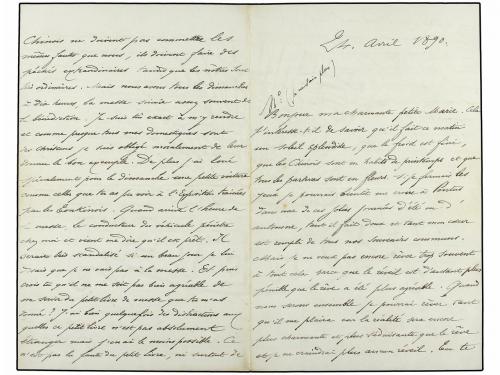 24 Avril 1890.
(à midi plus)
Bonjour ma charmante petite Marie. Cela
t'intéresse-t-il de savoir qu'il fait ce matin
un soleil splendide, que le froid est fini,
que les Chinois sont en habits de printemps et que
tous les parterres sont en fleurs. Si je fermais les
yeux je pourrais bientôt me croire à Pontus
dans une de ces plus journées d'été ou d'
automne, tant il fait doux et tant mon cœur
est rempli de tous nos souvenirs communs.
Mais je ne veux pas encore rêver trop souvent
à tout cela parce que le réveil est d'autant plus
pénible que le rêve a été plus agréable. Quand
nous serons ensemble je pourrai rêver tant
qu'il me plaira car la réalité sera encore
plus charmante et plus séduisante que le rêve
et je ne craindrai plus aucun réveil. En te
Chinois ne doivent pas commettre les
mêmes fautes que nous, ils doivent faire des
péchés extraordinaires tandis que les nôtres sont
si ordinaires. Mais nous avons tous les dimanches
à dix heures, la messe suivie assez souvent de
la bénédiction. Je suis très exact à m'y rendre
et comme presque tous mes domestiques sont
des chrétiens je suis obligé moralement de leur
donner le bon exemple. De plus j'ai loué
spécialement pour le dimanche une petite voiture
comme celle que tu as pu voir à l'Exposition traînées
par les Tonkinois. Quand arrive l'heure de
la messe, le conducteur du véhicule pénètre
chez moi et vient me dire qu'il est prêt. Il
serait bien scandalisé si un beau jour je lui
disais que je ne vais pas à la messe. Et puis
crois tu qu'il ne me soit pas bien agréable de
me servir du petit livre de messe que tu m'as
donné? J'ai bien quelquefois des distractions aux
quelles ce petit livre n'est pas absolument
étranger mais j'en ai le moins possible. Ce
n'est pas la faute du petit livre, ni surtout de